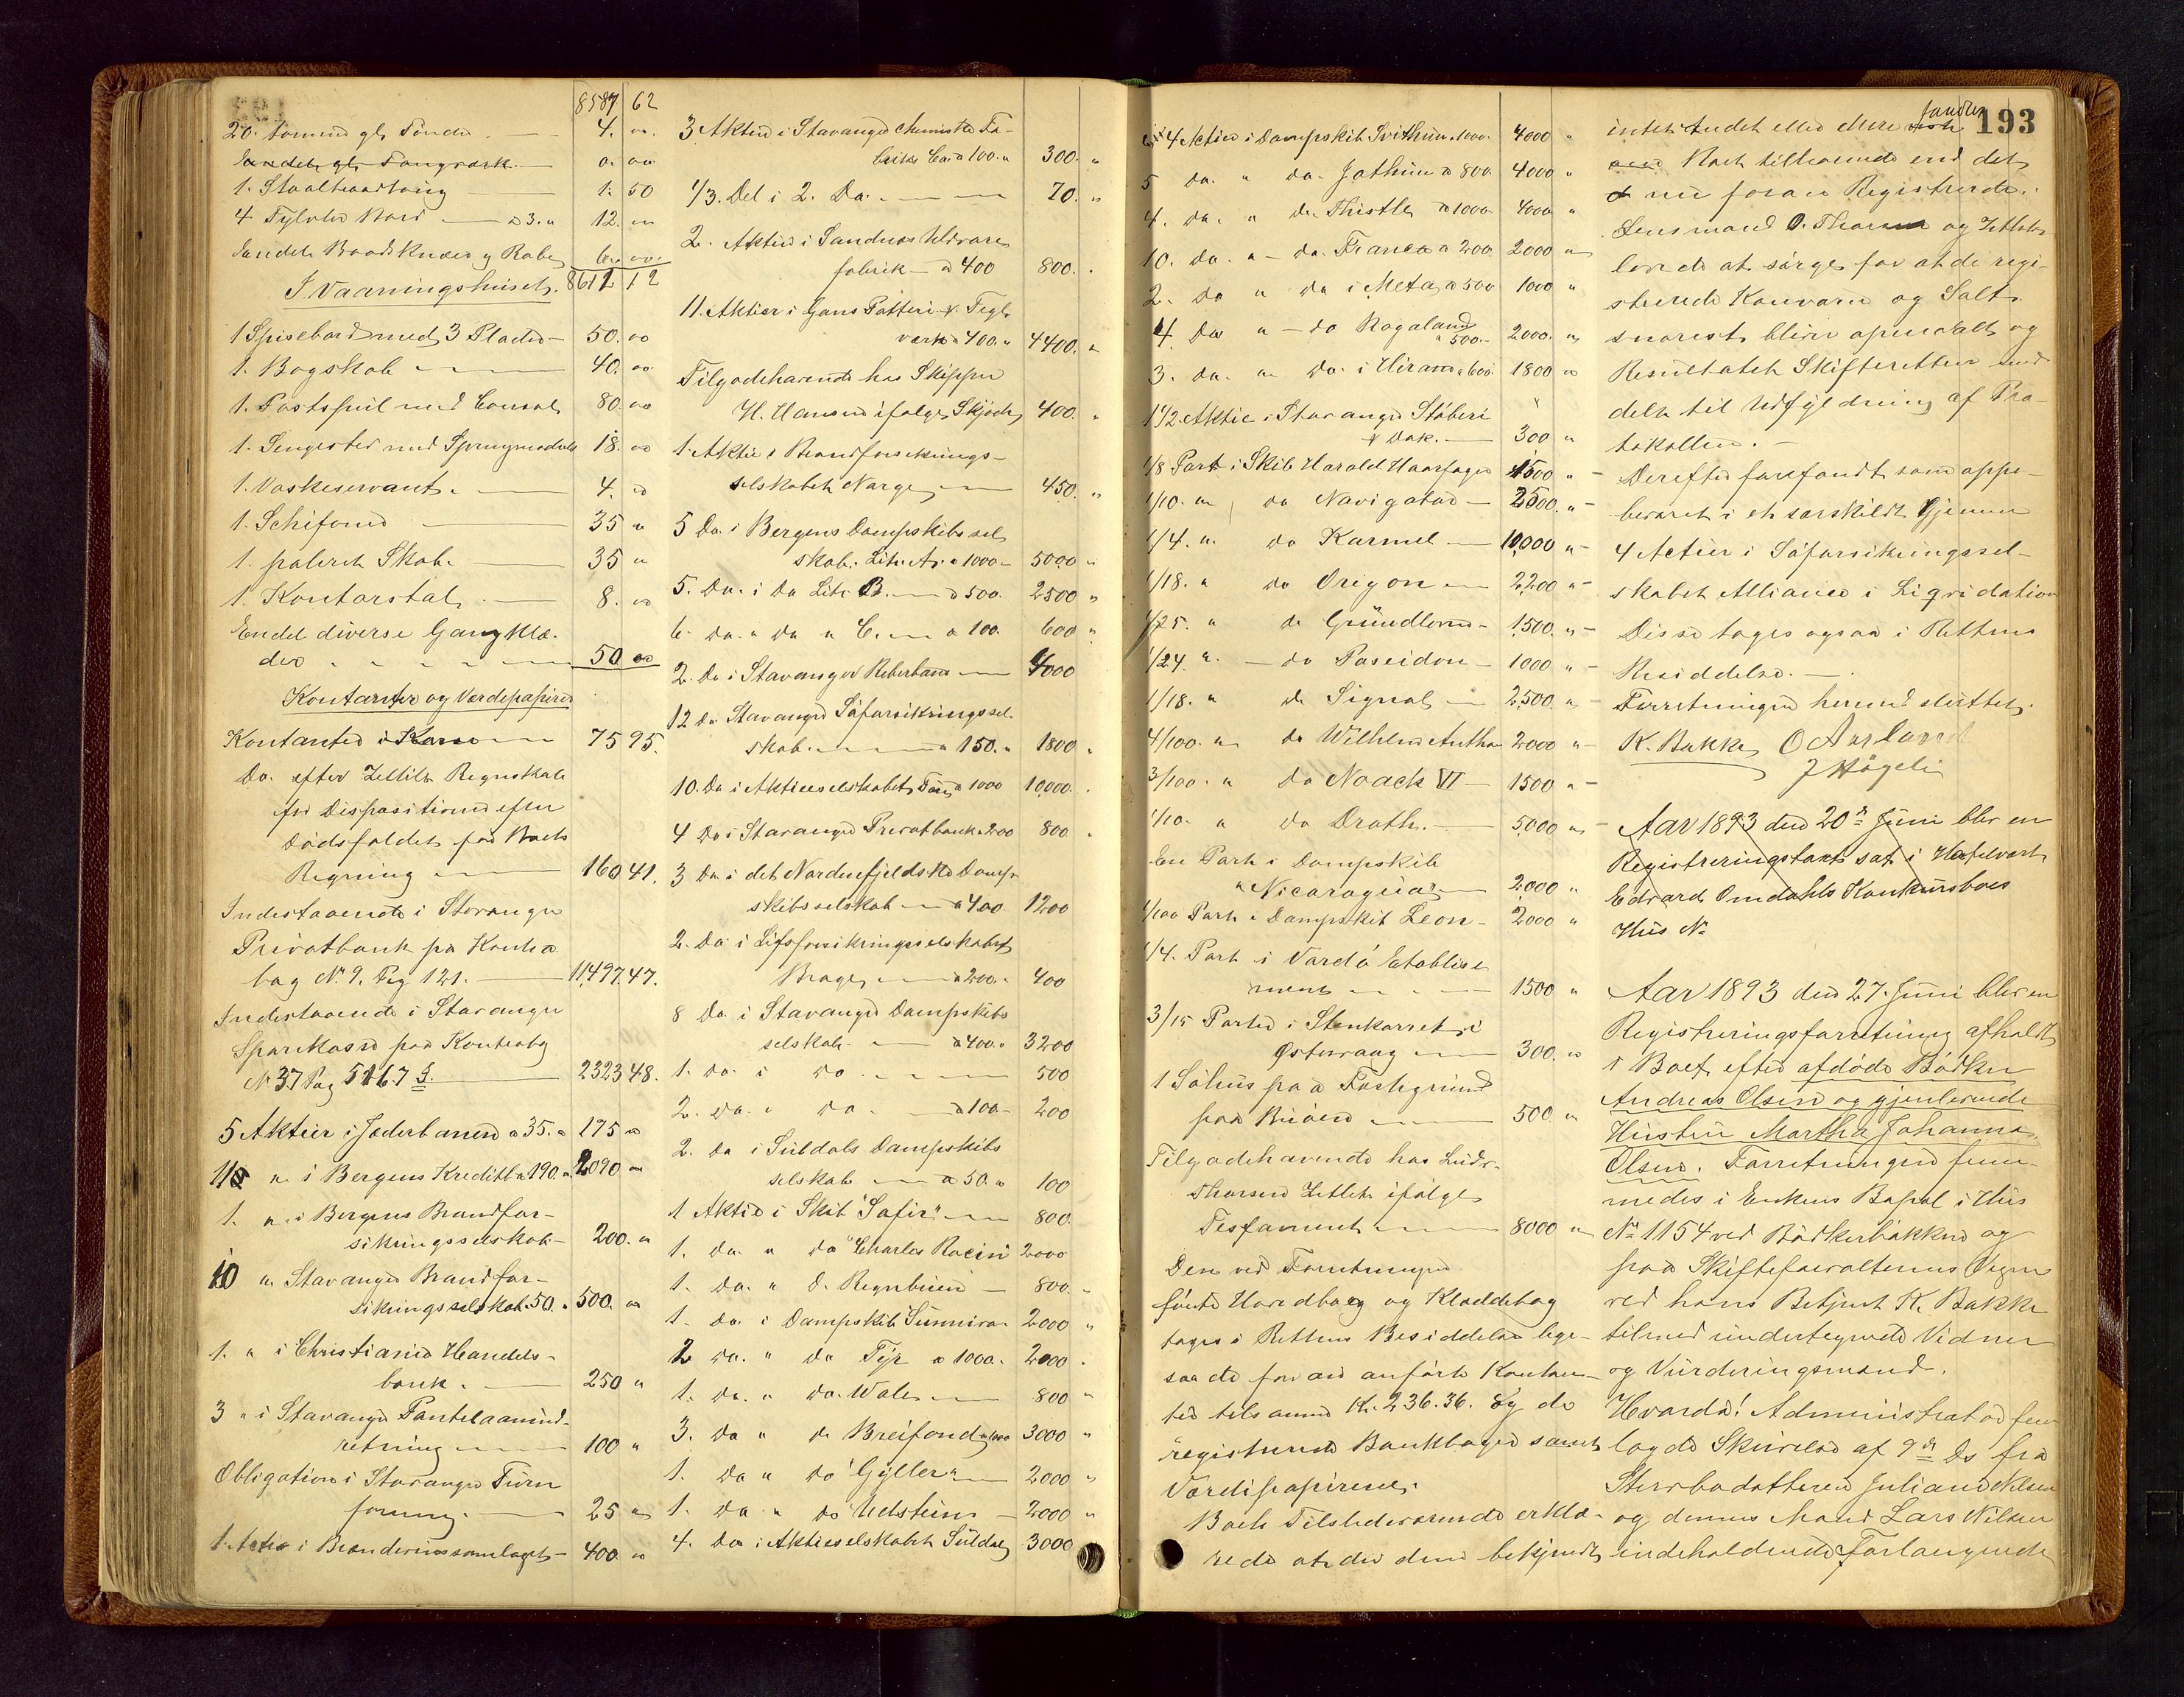 8587 62
20. tomme gl. Tønder 4. oo.
Endel gl. Tougværk o. oo
1. Staaltraadtoug 1. 50
4 Tylvter Bord a 3. " 12. oo
Endel Baads Knæer og Rober 6. oo.
8611 12
I Vaaningshuset.
1 Spisebord med 3 Plader 50. oo
1. Bogskab 40. oo
1. Forte­speil med Consol 80. oo
1. Sengested med Springmadrats 18. oo
1. Vaskeservant 4. oo
1. Schifonier 35 "
1. poleret Skab. 35 "
1. Kontorstol 8. oo
Endel diverse Gangklæ-
der 50 oo
Kontanter og Værdipapirer
Kontanter i Kasse 75 95.
Do. efter Zetlitz Regnskab
for Dispositioner efter
Dødsfaldet paa Boets
Regning 160 41.
Indestaaende i Stavanger
Privatbank pa Kontra
bog No 9. Pag 121. 11,497. 47.
Indestaaende i Stavanger
Sparekasse paa Kontrabog
No 37 Pag 5167 2323 48.
5 Aktier i Jæderbanen a 35. " 175 "
11 " i Bergens Kreditb. a 190. " 2090 "
1. " i Bergens Brandfor-
sikringsselskab 200. "
10 " Stavanger Brandfor-
sikringsselskab. 50. " 500. "
1. " i Christiania Handels-
bank. 250 "
3 " i Stavanger Pantelaanind-
retning 100 "
Obligation i Stavanger Turn
forening. 25 "
1. Actie i Brænderisamlaget 400 "
3 Aktier i Stavanger Chemiske Fa-
briks Co a 100. " 300. "
1/3. Del i 2. Do. 70. "
2. Aktier i Sandnæs Uldvare
fabrik a 400 800. .
11. Aktier i Gans Potteri & Tegl-
værk a 400. " 4400. "
Tilgodehavende hos Skipper
H. Hansen ifølge Skjøde 400. "
1. Aktie i Brandforsikrings-
selskabet Norge 450. "
5 Do. i Bergens Dampskibs sel
skab. Litr. A. a 1000 5000 "
5. Do. i Do Litr B. a 500. 2500 "
6. do. " do " C. a 100. 600 "
2. Do i Stavanger Reberbane 4000
12 Do Stavanger Søforsikringssel-
skab. a 150. " 1800 "
10. Do i Aktieselskabet a 1000 10,000. .
4 Do i Stavanger Privatbank a 200 800 "
3 Do i det Nordenfjeldske Damp-
skibsselskab a 400. 1200
2. Do i Lifsforsikringsselskabet
Brage a 200. 400
8 Do i Stavanger Dampskibs
selskab. a 400. " 3200
1. do. i do. 500
2. do. " do. a 100 200
2. do i Suldals Dampskibs
selskab a 50. " 100
1 Aktie i Skib "Safir" 800.
1. do. " do "Charles Racine 2000
1. do. " do. Regnbuen 800. "
1. do. i Dampskib Sunniva 2000 "
2 do. " do Tyr a 1000. 2000 .
1. do. " do. Wale 800 "
3. do " do Breifond a 1000 3000 "
1. do " do "Gyller" 2000 "
1. do " do Udstein 2000 "
4. do i Aktieselskabet Suldal 3000
193
4 Actier i Dampskib Svithun a 1000. 4000 "
5 do. " do. Jathun a 800. 4000 "
4. do. " do. Thistle a 1000. 4000 "
10. do. " do. Franca a 200 2000 "
2. do " do i Meta a 500 1000 "
4. do " do Rogaland
a 500. 2000. "
3. do. " do. i Hiram a 600. 1800 "
1 1/2. Aktie i Stavanger Støberi "
& Dok. 300 "
1/8 Part i Skib Harald Haarfager 1500 "
1/10. " do Navigator 2500. "
1/4. " do Karmel 10,000 "
1/18. " do Oregon 2,200 "
1/25. " do Gründloven 1,500. "
1/24. " do Poseidon 1000 "
1/18. " do Signal 2,500. "
4/100. " do Wilhelm Anthon 2000 "
3/100. " do Noach VI 1500 "
1/10. " do Droth. 5,000 "
En Part i Dampskib
"Nicaragua 2,000 "
1/100 Part i Dampskib Leon 2,000 "
1/4. Part i Vardø Etablise
ment 1500 "
3/15 Parter i Stenkarret i
Østervaag 300. "
1 Søhus paa Fæstegrund
paa Buøen 500 "
Tilgodehavende hos Ludv.
Thorsen Zetlitz ifølge
Testament 8000 "
Den ved Forretningen
førte Hovedbog og Kladdebog
toges i Rettens Besiddelse lige-
saa de foran anførte Kontan-
ter tilsammen Kr. 236.36. og de
registrerede Bankbøger samt
Værdipapirerne.
Boets Tilstedeværende erklæ-
rede at de dem bekjendt
intet Andet eller Mere fandtes
Boet tilhørende end det
nu foran Registrerede.
Lensmand O. Thorsen og Zetlitz
lovede at sørge for at de regi-
strerede Kornvarer og Salt
snarest bliver opmaalt og
Resultatet Skifteretten med
delt til Udfyldning af Pro-
tokollen.
Derefter forefandt som oppe-
bevaret i et særskildt Gjemme
4 Actier i Søforsikringssel-
skabet Alliance i Liqvidation
Disse toges ogsaa i Rettens
Besiddelse.
Forretningen hermed sluttet.
K. Bakke O Aarland
J Høgeli
Aar 1893 den 20de Juni blev en
Registreringstaxt sat i Hotelvært
Edvard Omdahls Konkursboes
Hus No
Aar 1893 den 27. Juni blev en
Registreringsforretning afholdt
i Boet efter afdøde Bødker
Andreas Olsen og gjenlevende
Hustru Martha Johanna
Olsen. Forretningen frem-
medes i Enkens Bopæl i Hus
No 1154 ved Bødkerbakken og
paa Skifteforvalterens Vegne
ved hans Betjent K. Bakke
tilmed undertegnede Vidner
og Vurderingsmænd.
Hvorda! Administrator frem
lagde Skrivelse af 9de ds fra
Stervbodatteren Juliane Nilsen
og dennes Mand Lars Nilsen
indeholdende Forlangende